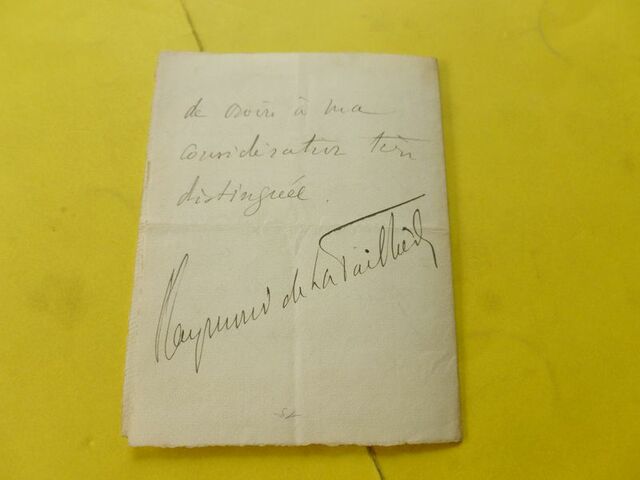 de croire à ma
considération très
distinguée.
Raymond de La Tailhède